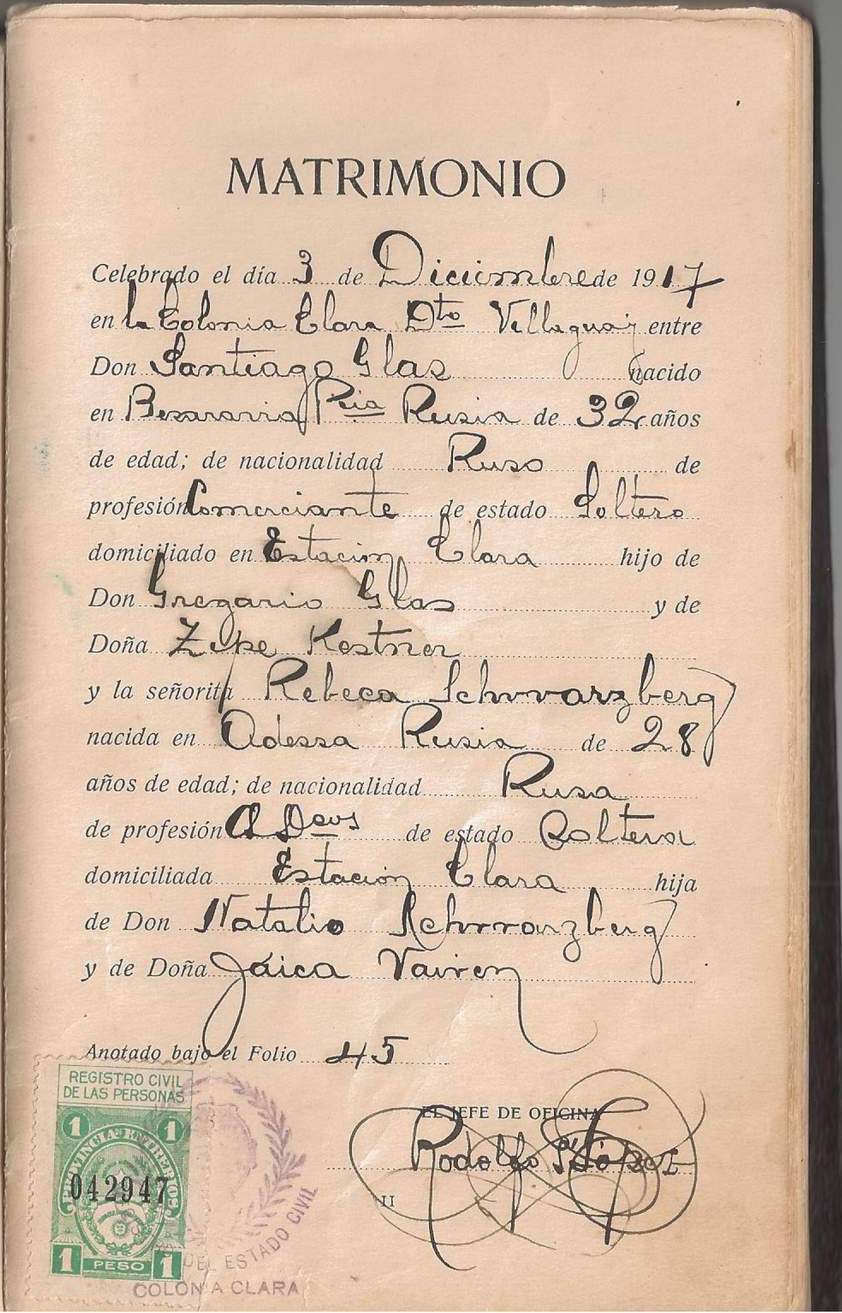 MATRIMONIO
Celebrado el día 3 de Diciembre de 1917
en la Colonia Clara Dto Villaguay entre
Don Santiago Glas nacido
en Besararria Pcia Rusia de 32 años
de edad; de nacionalidad Ruso de
profesión Comerciante de estado Soltero
domiciliado en Estación Clara hijo de
Don Gregorio Glas y de
Doña Zipe Kestner
y la señorita Rebeca Schwarzberg
nacida en Odessa Rusia de 28
años de edad; de nacionalidad Rusa
de profesión Q Deos de estado Soltera
domiciliada Estación Clara hija
de Don Natalio Schwarzberg
y de Doña Jáica
Anotado bajo el Folio 45
REGISTRO CIVIL
DE LAS PERSONAS
1 1
PROVINCIA ENTRE RIOS
042947
1 PESO 1
DEL ESTADO CIVIL
COLONIA CLARA
EL JEFE DE OFICINA
Rodolfo López
II